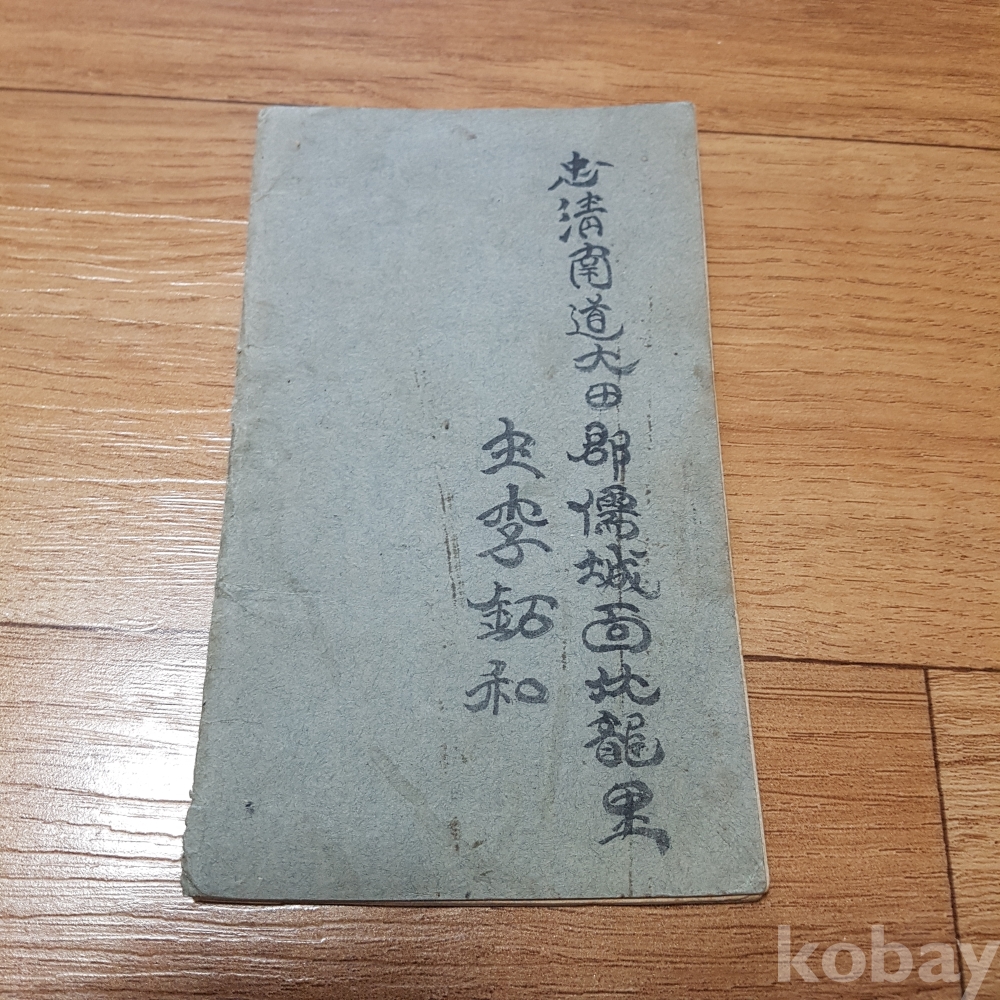 忠清南道大田郡儒城面龍里
李鉐和
kobay